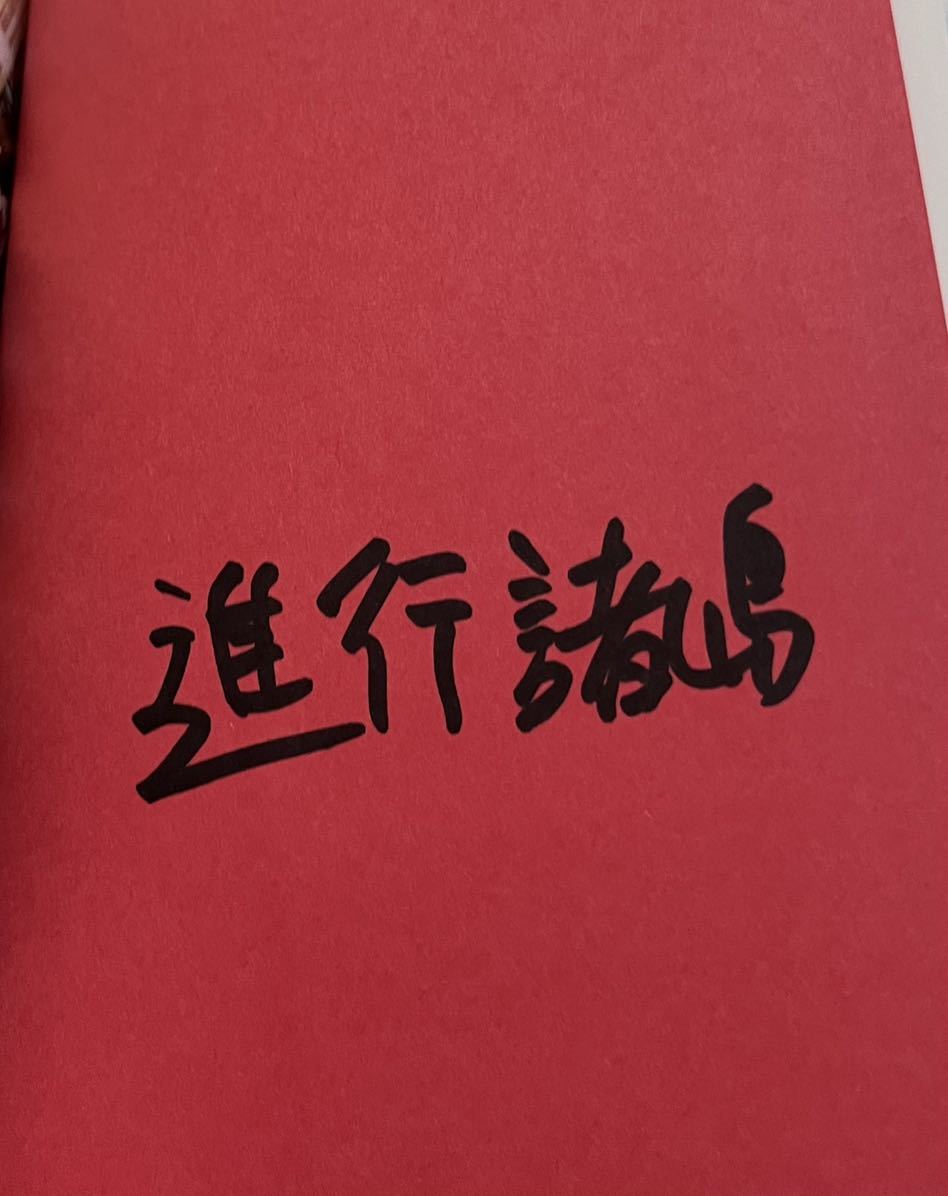 進行諸島